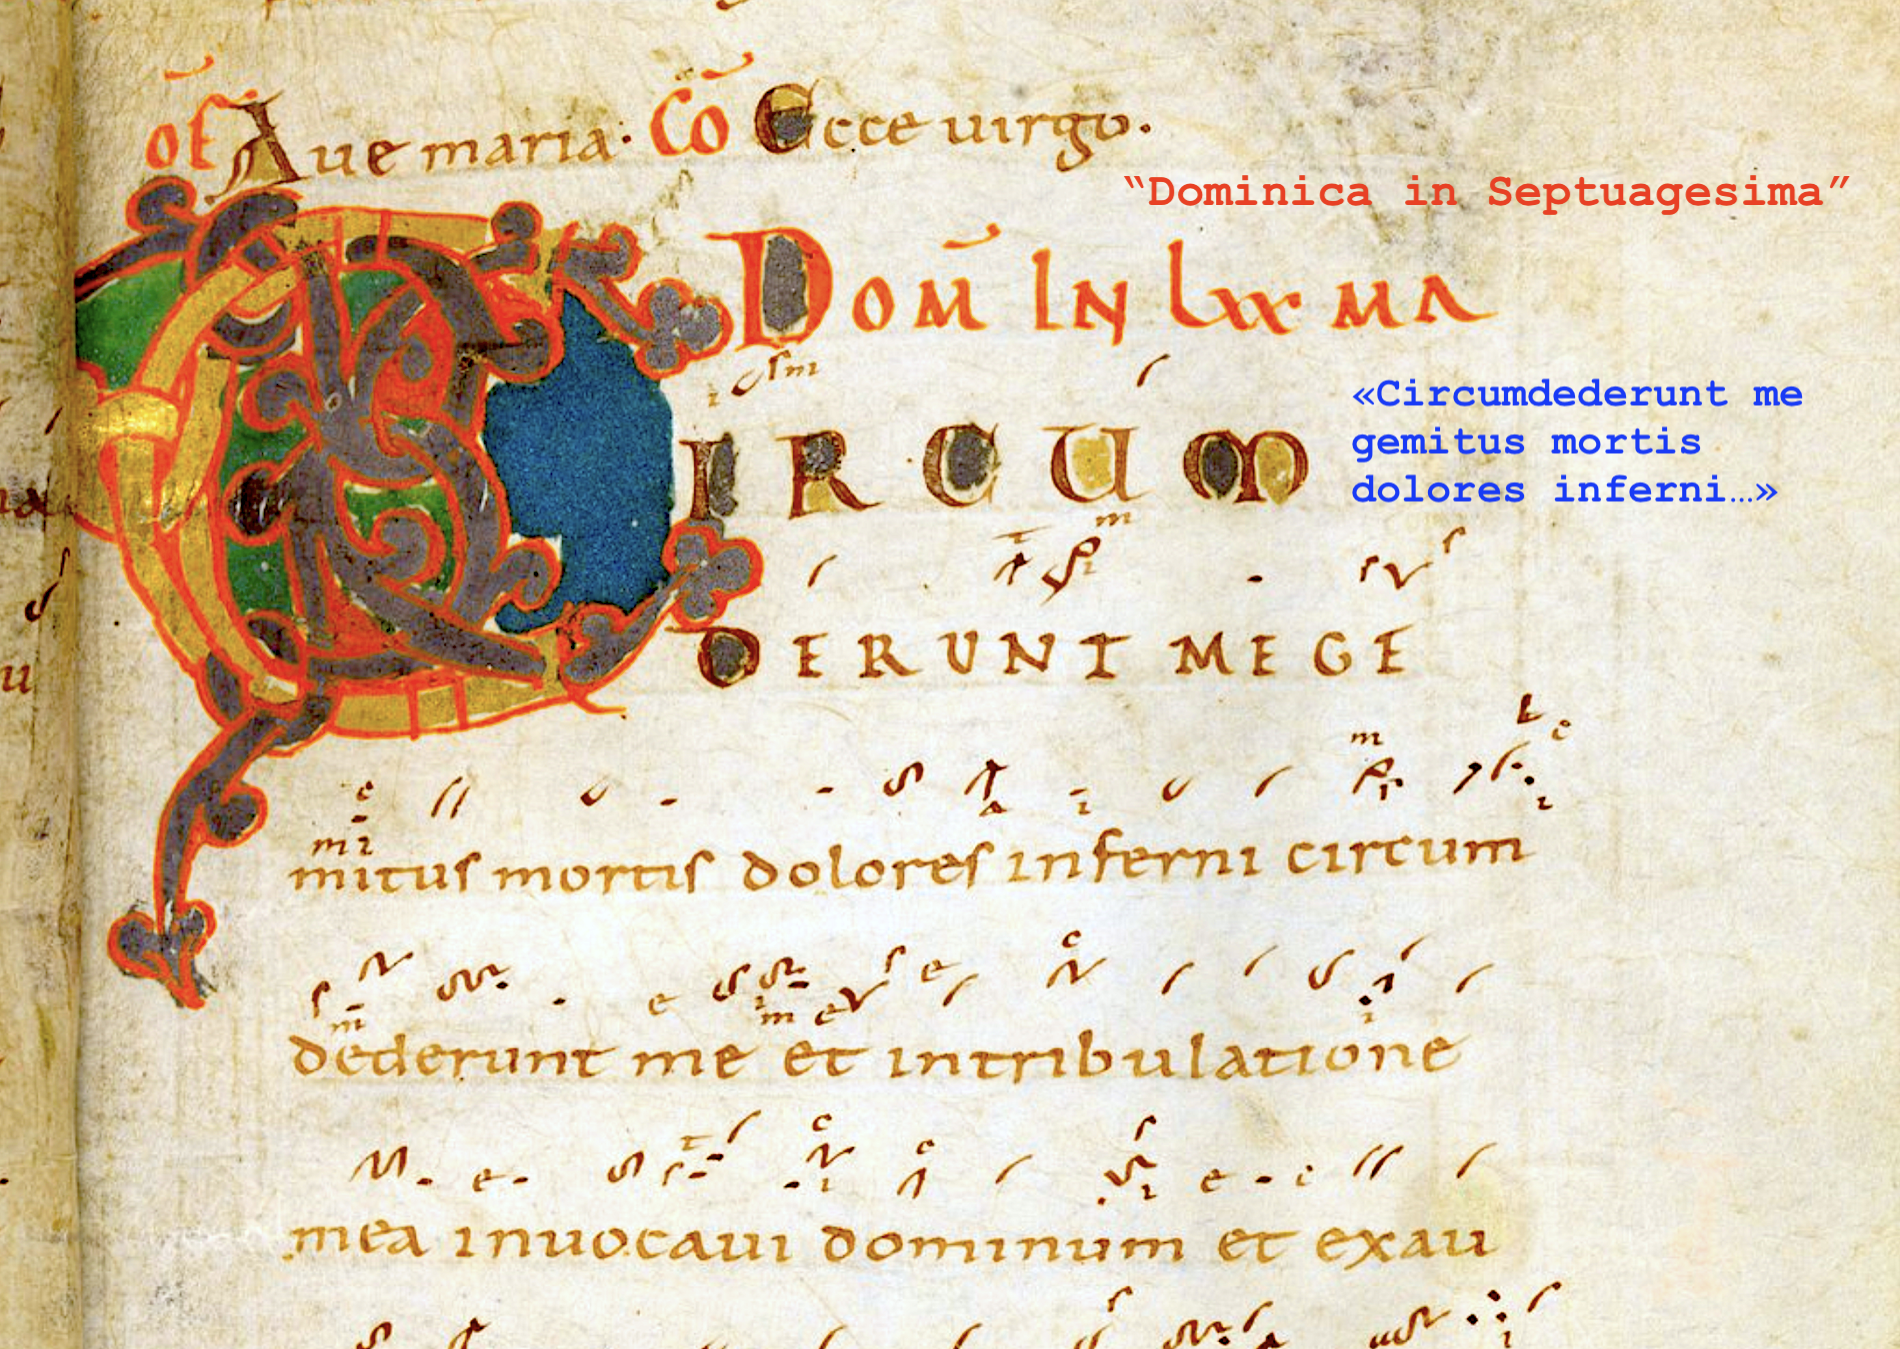 of Aue maria· Cō Ecce uirgo.
“Dominica in Septuagesima”
DOM̄ IN lxx MA
CIRCUM
«Circumdederunt me
gemitus mortis
dolores inferni…»
DERUNT ME GE
mitus mortis dolores inferni circum
dederunt me et intribulatione
mea inuocaui dominum et exau